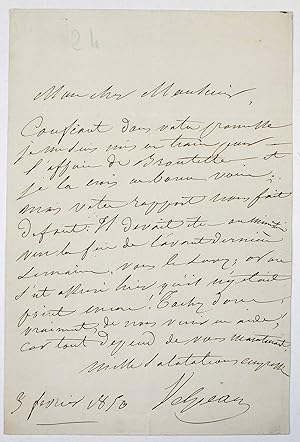 24
Mon cher Monsieur,
Confiant dans votre promesse
je me suis mis en train pour
l'affaire de              et
je la crois en bonne voie,
mais votre rapport nous fait
défaut. Il devait être au
vers la fin de l'avant dernière
semaine, vous le savez; or on
s'est assuré hier qu'il n'y était
point encore! Tachez donc
vraiment de nous venir en aide,
car tout dépend de vous maintenant.
Mille salutations empressées
3 février 1850
Velpeau